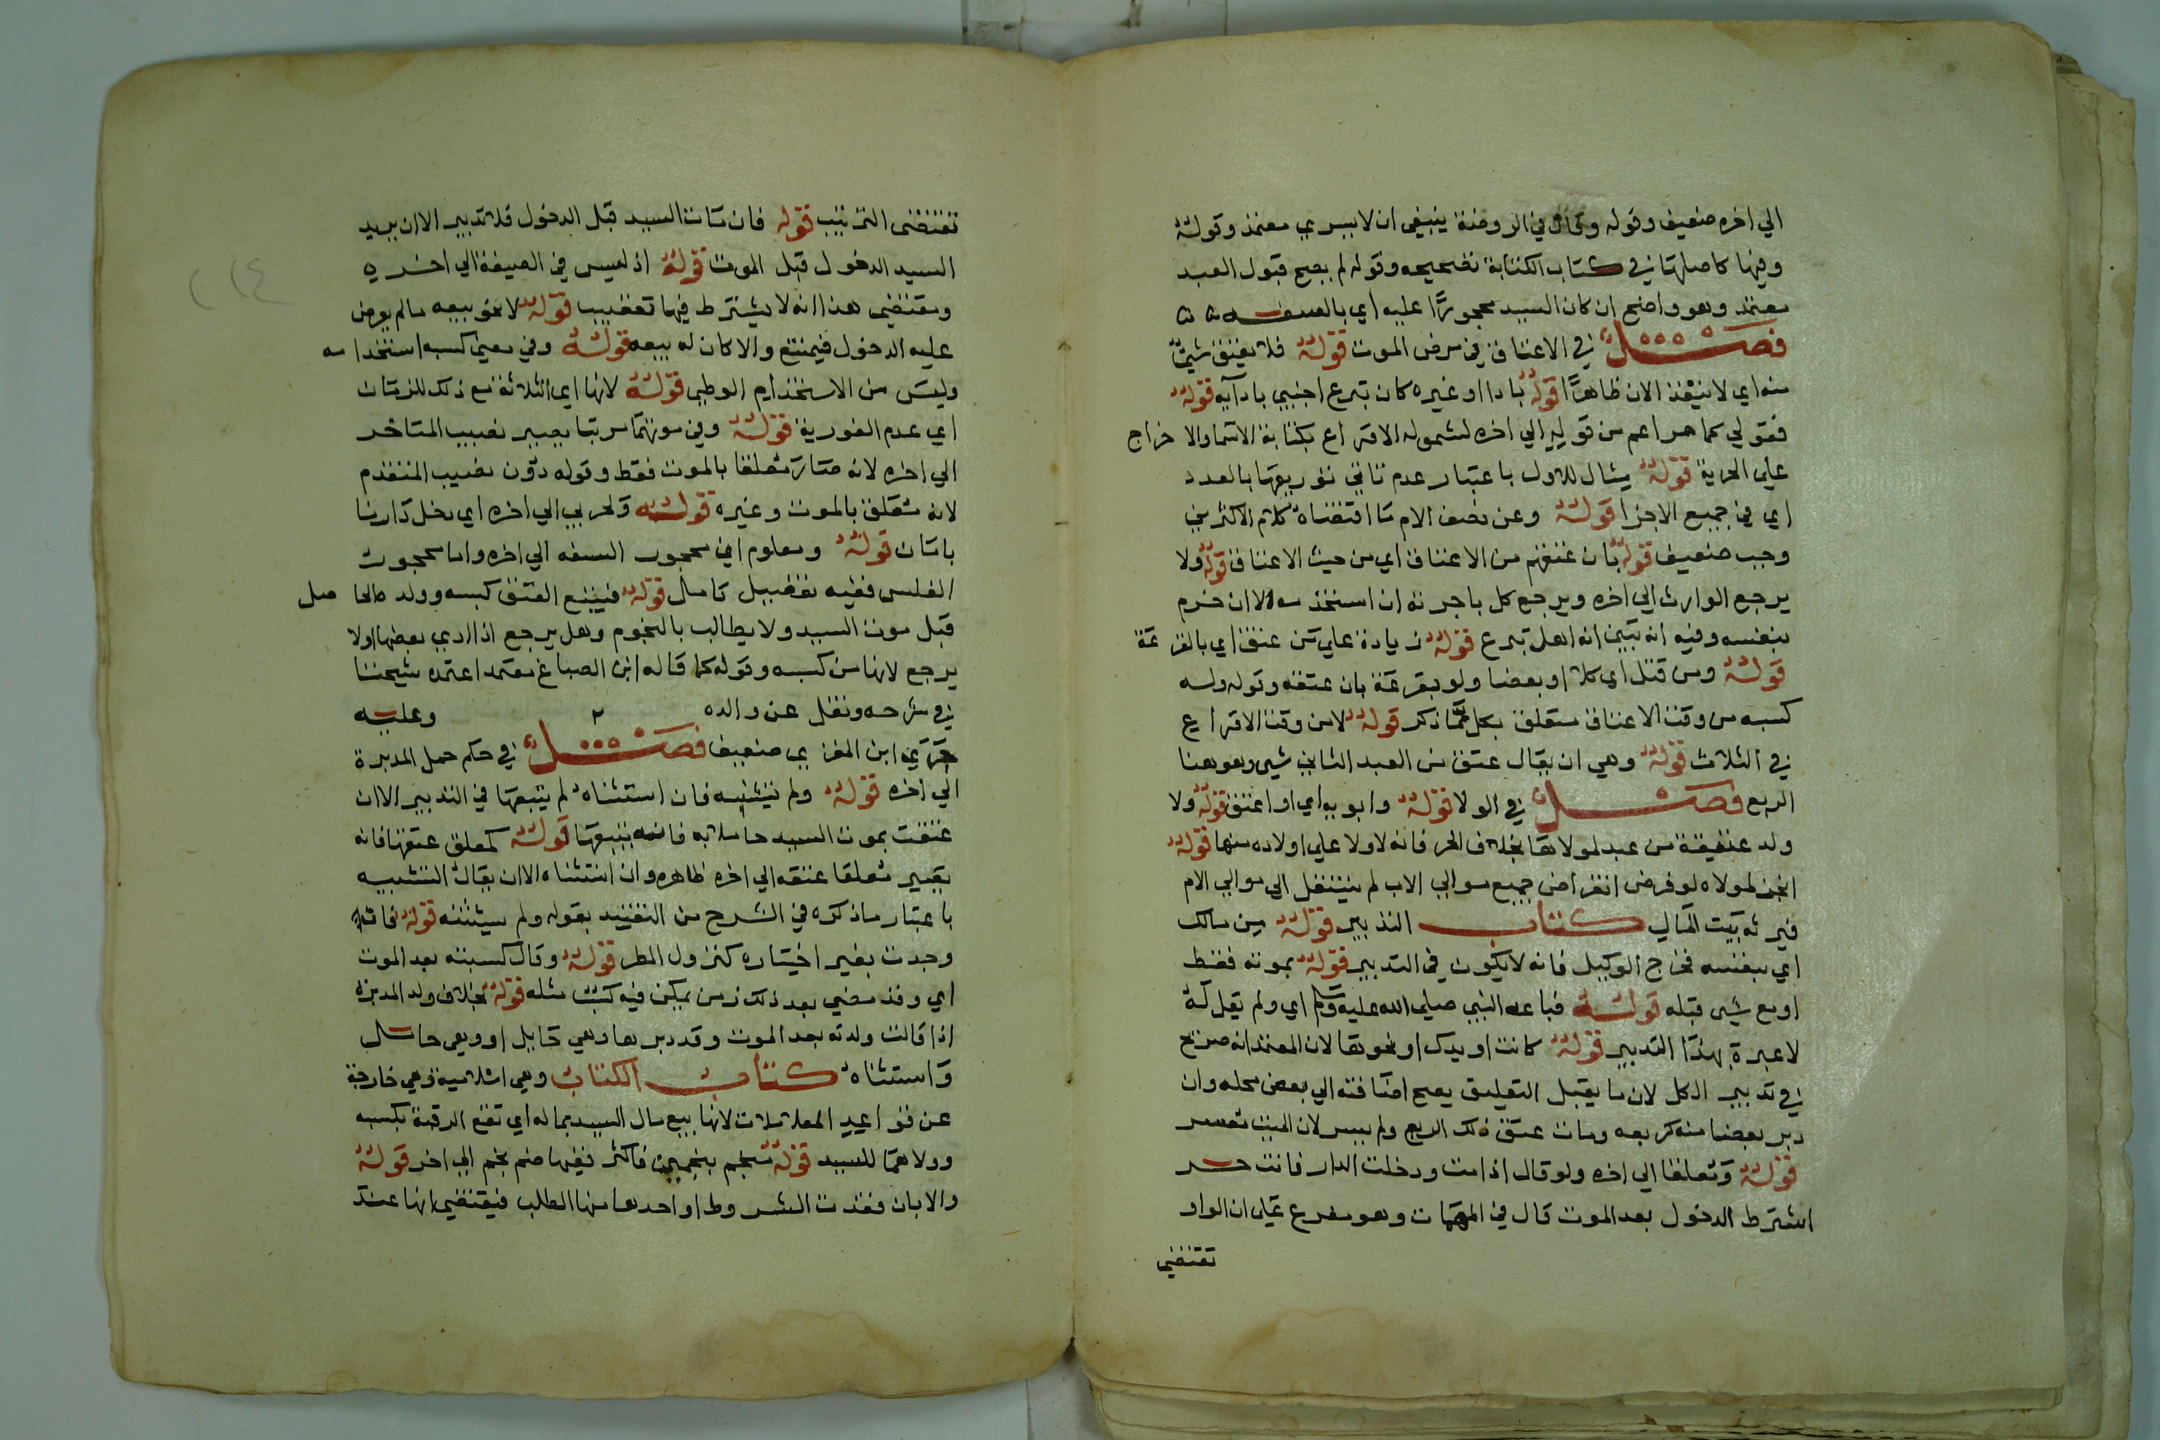 الي اخره ضعيف وقوله وقال في الروضة ينبغي ان لا يسري معتمد وقوله
وفيها كاصلها في كتاب الكتابة تصحيحه وقوله لم يصح قبول العبد
معتمد وهو واضح ان كان السيد محجورا عليه اي بالسفه
فصل في الاعتاق في مرض الموت قوله فلا يعتق شي
منه اي لا ينفذ الان ظاهرا قوله بادا او غيره كان تبرع اجنبي بادآيه قوله
فقولي كما هو اعم من قوله الي اخره لشموله الاقراع بكتابة الاسما والاخراج
علي الحرية قوله مثال للاول باعتبار عدم تاتي توزيعها بالعدد
اي في جميع الاجزا قوله وعن نصف الام ما اقتضاه كلام الاكثر من
وجب ضعيف قوله بان عتقهم من الاعتاق اي من حيث الاعتاق قوله ولا
يرجع الوارث الي اخره ويرجع كل باجرته ان استخدمه الا ان خدم
بنفسه وفيه انه تبين انه اهل تبرع قوله زيادة علي من عتق اي بالقرعة
قوله ومن قتل اي كلا او بعضا ولو بقرعة بان عتقه وقوله وله
كسبه من وقت الاعتاق متعلق بكل مما ذكر قوله لا من وقت الاقراع
في الثلاث قوله وهي ان يقال عتق من العبد الثاني شي وهو هنا
الربع فصل في الولا قوله وابويه اي او اعتق قوله ولا
ولد عتيقة من عبد لمولاها بخلاف الحر فانه لا ولا علي اولاده منها قوله
انجر لمولاه لو فرض انقراض جميع موالي الاب لم ينتقل الي موالي الام
فيرثه بيت المال كتاب التدبير قوله من مالك
اي بنفسه فخرج الوكيل فانه لا يكون في التدبير قوله بموته فقط
او مع شي قبله قوله فباعه النبي صلي الله عليه وسلم اي ولم يقل له
لا عبرة بهذا التدبير قوله كانت او يدك او نحوها لان المعتمد انه صريح
في تدبير الكل لان ما يقبل التعليق يصح اضافته الي بعض محله وان
دبر بعضا منه كربعه ومات عتق ذلك الربع ولم يسر لان الميت معسر
قوله وتعلقا الي اخره ولو قال اذا مت ودخلت الدار فانت حر
اشترط الدخول بعد الموت قال في المهمات وهو مفرع علي ان الواو
تقتضي
تقتضى الترتيب قوله فان مات السيد قبل الدخول فلا تدبير الا ان يريد
السيد الدخول قبل الموت قوله اذ ليس في الصيغة الي اخره
ومقتضي هذا انه لا يشترط فيها تعقيب قوله لا نحو بيعه ما لم يعرض
عليه الدخول فيمتنع والا كان له بيعه قوله وفي معني كسبه استخدامه
وليس من الاستخدام الوطي قوله لانها اي الثلاثة مع ذلك للزمان
اي عدم الفورية قوله وفي موتهما مرتبا يصير نصيب المتاخر
الي اخره لانه صار معلقا بالموت فقط وقوله دون نصيب المتقدم
لانه معلق بالموت وغيره قوله ولحربي الي اخره اي دخل دارنا
بامان قوله ومعلوم اني محجور السفه الي اخره واما محجور
الفلس ففيه تفصيل كامل قوله فيتبع العتق كسبه وولده الحاصل
قبل موت السيد ولا يطالب بالنجوم وهل يرجع اذا ادي بعضها او لا
يرجع لانها من كسبه وقوله كما قاله ابن الصباغ معتمد اعتمده شيخنا
في شرحه ونقل عن والده وعليه
جري ابن المقري ضعيف فصل في حكم حمل المدبرة
الي اخره قوله ولم يستثنه فان استثناه لم يتبعها في التدبير الا ان
عتقت بموت السيد حاملا به فانه يتبعها قوله كمعلق عتقها فانه
يصير معلقا عتقه الي اخره ظاهره وان استثناه الا ان يقال التشبيه
باعتبار ما ذكره في الشرح من التقييد بقوله ولم يستثنه قوله فاتت
وجدت بغير اختياره كنزول المطر قوله وقال كسبته بعد الموت
اي وقد مضي بعد ذلك زمن يمكن فيه كسب مثله قوله بخلاف ولد المدبرة
اذا قالت ولدته بعد الموت وقد دبرها وهي حايل او وهي حامل
واستثناه كتاب الكتابة وهي اسلامية وهي خارجة
عن قواعد المعاملات لانها بيع مال السيد بماله اي تقع الرقبة بكسبه
وولاهما للسيد قوله منجم بنجمين فاكثر ففيها ضم نجم الي اخر قوله
والا بان فقدت الشروط او احدها منها الطلب فيقتضي انها عند